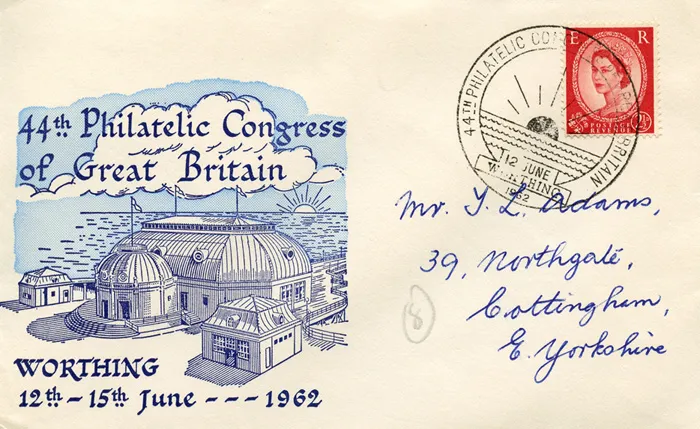 44th Philatelic Congress
of Great Britain
WORTHING
12th - 15th June --- 1962
E R
POSTAGE
REVENUE
2½
44TH PHILATELIC CONGRESS BRITAIN
12 JUNE
WORTHING
1962
Mr. J. L. Adams,
39, Northgate,
Cottingham,
E. Yorkshire
8